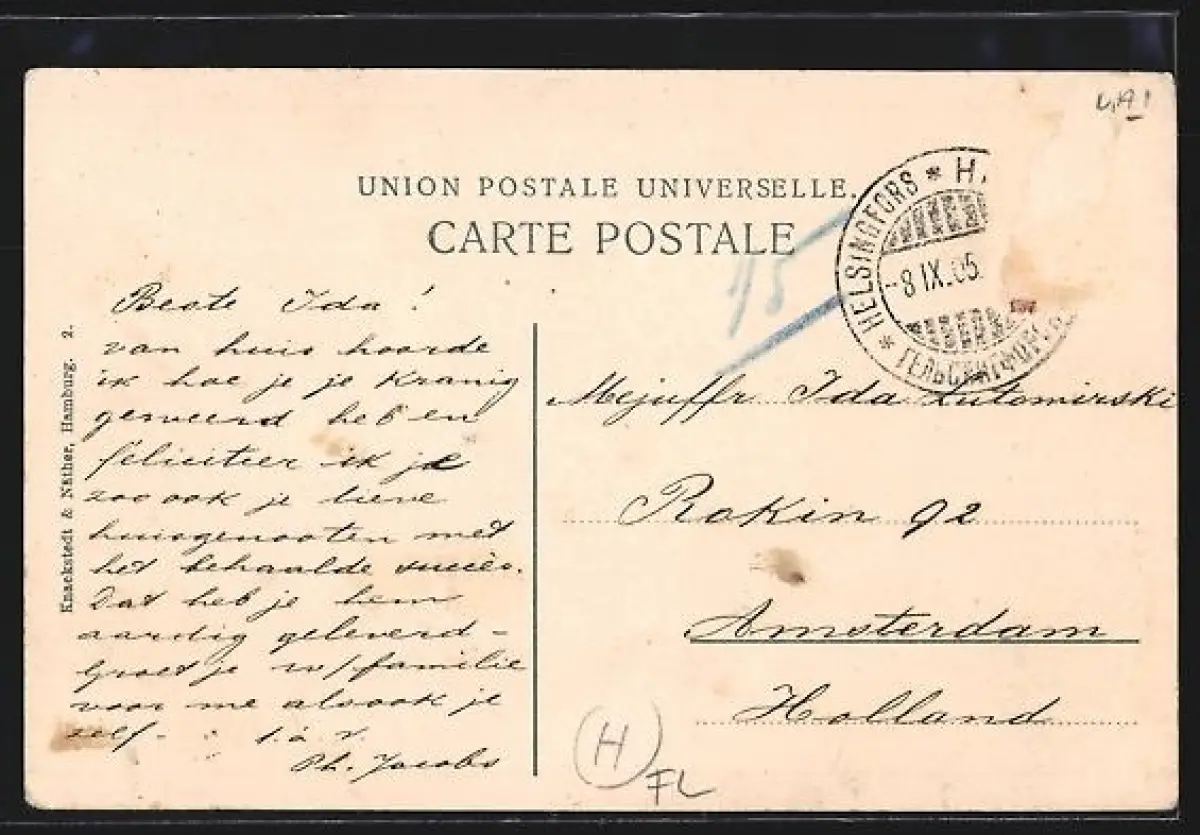 UNION POSTALE UNIVERSELLE.
CARTE POSTALE
HELSINGFORS * H.
-8 IX.05
ГЕЛЬСИНГФОР
15
Knackstedt & Näther, Hamburg. 2.
Beste Ida!
van huis hoorde
ik hoe je je kranig
geweerd heb en
feliciteer ik je
zoo ook je lieve
huisgenooten met
het behaalde succès.
Dat heb je hem
aardig geleverd -
Groet je w/ familie
voor me alsook je
zelf. t.à.v.
Ph. Jacobs
Mejuffr Ida Lutomirski
Rokin 92
Amsterdam
Holland
H
FL